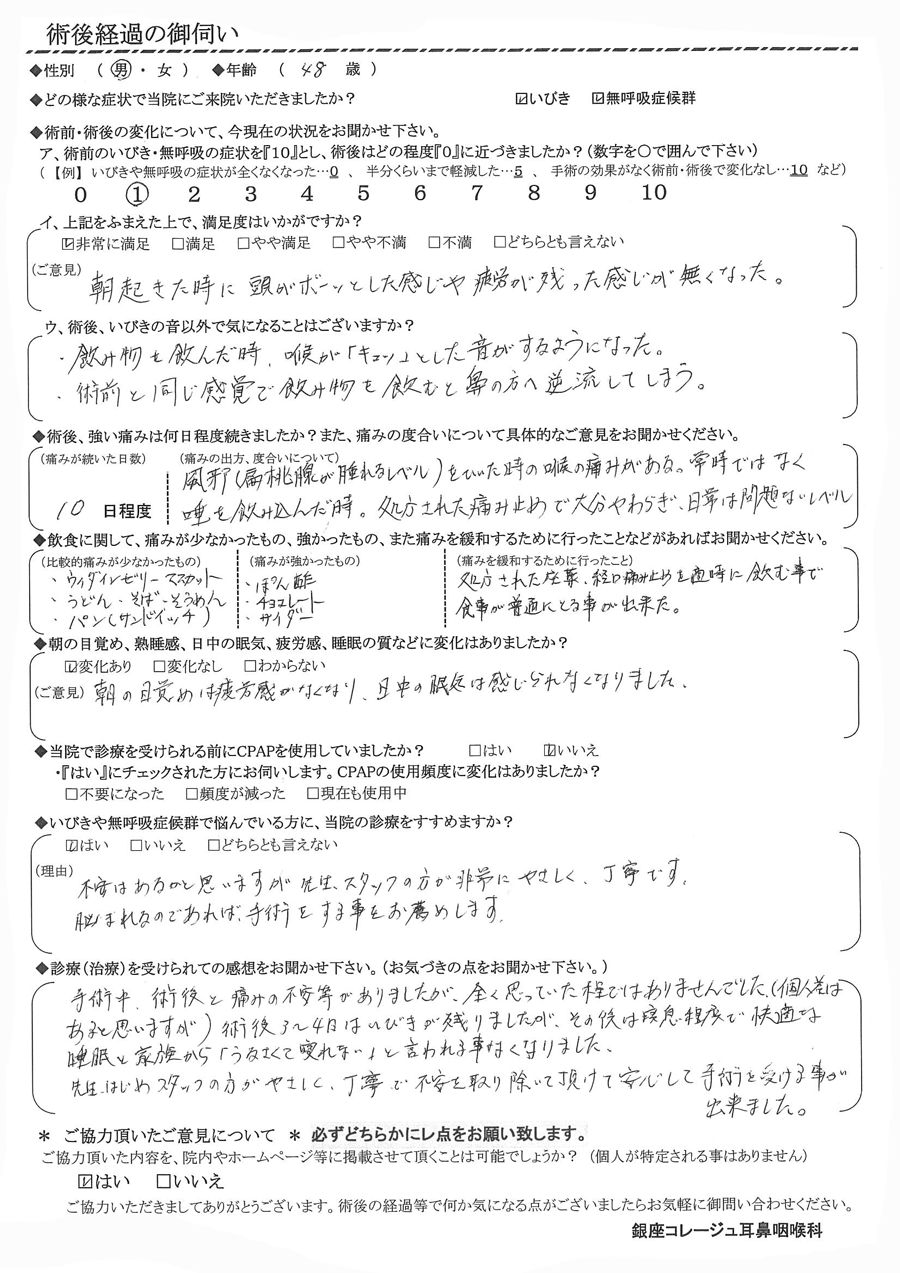 術後経過の御伺い
◆性別 （ 男 ・ 女 ） ◆年齢 （ 48 歳 ）
◆どの様な症状で当院にご来院いただきましたか？ ☑いびき ☑無呼吸症候群
◆術前・術後の変化について、今現在の状況をお聞かせ下さい。
ア、術前のいびき・無呼吸の症状を『10』とし、術後はどの程度『0』に近づきましたか？（数字を○で囲んで下さい）
（【例】 いびきや無呼吸の症状が全くなくなった…0 、 半分くらいまで軽減した…5 、 手術の効果がなく術前・術後で変化なし…10 など）
0 ① 2 3 4 5 6 7 8 9 10
イ、上記をふまえた上で、満足度はいかがですか？
☑非常に満足 □満足 □やや満足 □やや不満 □不満 □どちらとも言えない
（ご意見）
朝起きた時に 頭がボーッとした感じや 疲労が残った感じが無くなった。
ウ、術後、いびきの音以外で気になることはございますか？
・飲み物を飲んだ時、喉が「キュッ」とした音がするようになった。
・術前と同じ感覚で飲み物を飲むと鼻の方へ逆流してしまう。
◆術後、強い痛みは何日程度続きましたか？また、痛みの度合いについて具体的なご意見をお聞かせください。
（痛みが続いた日数） （痛みの出方、度合いについて）
風邪（扁桃腺が腫れるレベル）をひいた時の喉の痛みがある。常時ではなく
10 日程度 唾を飲み込んだ時。処方された痛み止めで大分やわらぎ、日常は問題ないレベル
◆飲食に関して、痛みが少なかったもの、強かったもの、また痛みを緩和するために行ったことなどがあればお聞かせください。
（比較的痛みが少なかったもの） （痛みが強かったもの） （痛みを緩和するために行ったこと）
・ウィダインゼリー マスカット ・ぽん酢 処方された座薬、経口痛み止めを適時に飲む事で
・うどん・そば・そうめん ・チョコレート 食事が普通にとる事が出来た。
・パン（サンドイッチ） ・サイダー
◆朝の目覚め、熟睡感、日中の眠気、疲労感、睡眠の質などに変化はありましたか？
☑変化あり □変化なし □わからない
（ご意見） 朝の目覚めは疲労感がなくなり、日中の眠気は感じられなくなりました。
◆当院で診療を受けられる前にCPAPを使用していましたか？ □はい ☑いいえ
・『はい』にチェックされた方にお伺いします。CPAPの使用頻度に変化はありましたか？
□不要になった □頻度が減った □現在も使用中
◆いびきや無呼吸症候群で悩んでいる方に、当院の診療をすすめますか？
☑はい □いいえ □どちらとも言えない
（理由）
不安はあるかと思いますが 先生、スタッフの方が非常に やさしく、丁寧です。
悩まれるのであれば、手術をする事をお薦めします。
◆診療（治療）を受けられての感想をお聞かせ下さい。（お気づきの点をお聞かせ下さい。）
手術中、術後と痛みの不安等がありましたが、全く思っていた程ではありませんでした。（個人差は
あると思いますが） 術後3〜4日はいびきが残りましたが、その後は寝息程度で快適な
睡眠と家族から「うるさくて寝れない」と言われる事なくなりました。
先生はじめスタッフの方がやさしく、丁寧で不安を取り除いて頂けて安心して手術を受ける事が
出来ました。
＊ ご協力頂いたご意見について ＊ 必ずどちらかにレ点をお願い致します。
ご協力頂いた内容を、院内やホームページ等に掲載させて頂くことは可能でしょうか？ （個人が特定される事はありません）
☑はい □いいえ
ご協力いただきましてありがとうございます。術後の経過等で何か気になる点がございましたらお気軽に御問い合わせください。
銀座コレージュ耳鼻咽喉科